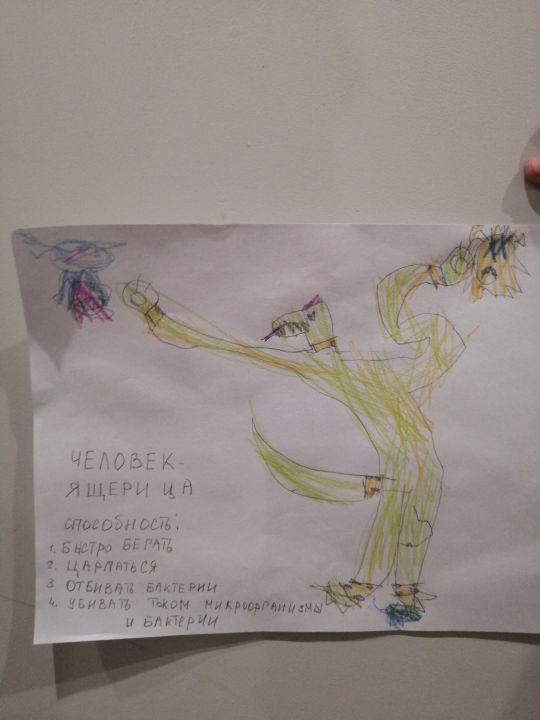 ЧЕЛОВЕК-
ЯЩЕРИЦА
СПОСОБНОСТЬ:
1. БЫСТРО БЕГАТЬ
2. ЦАРПАТЬСЯ
3 ОТБИВАТЬ БАКТЕРИИ
4. УБИВАТЬ ТОКОМ МИКРООРГАНИЗМЫ
И БАКТЕРИИ